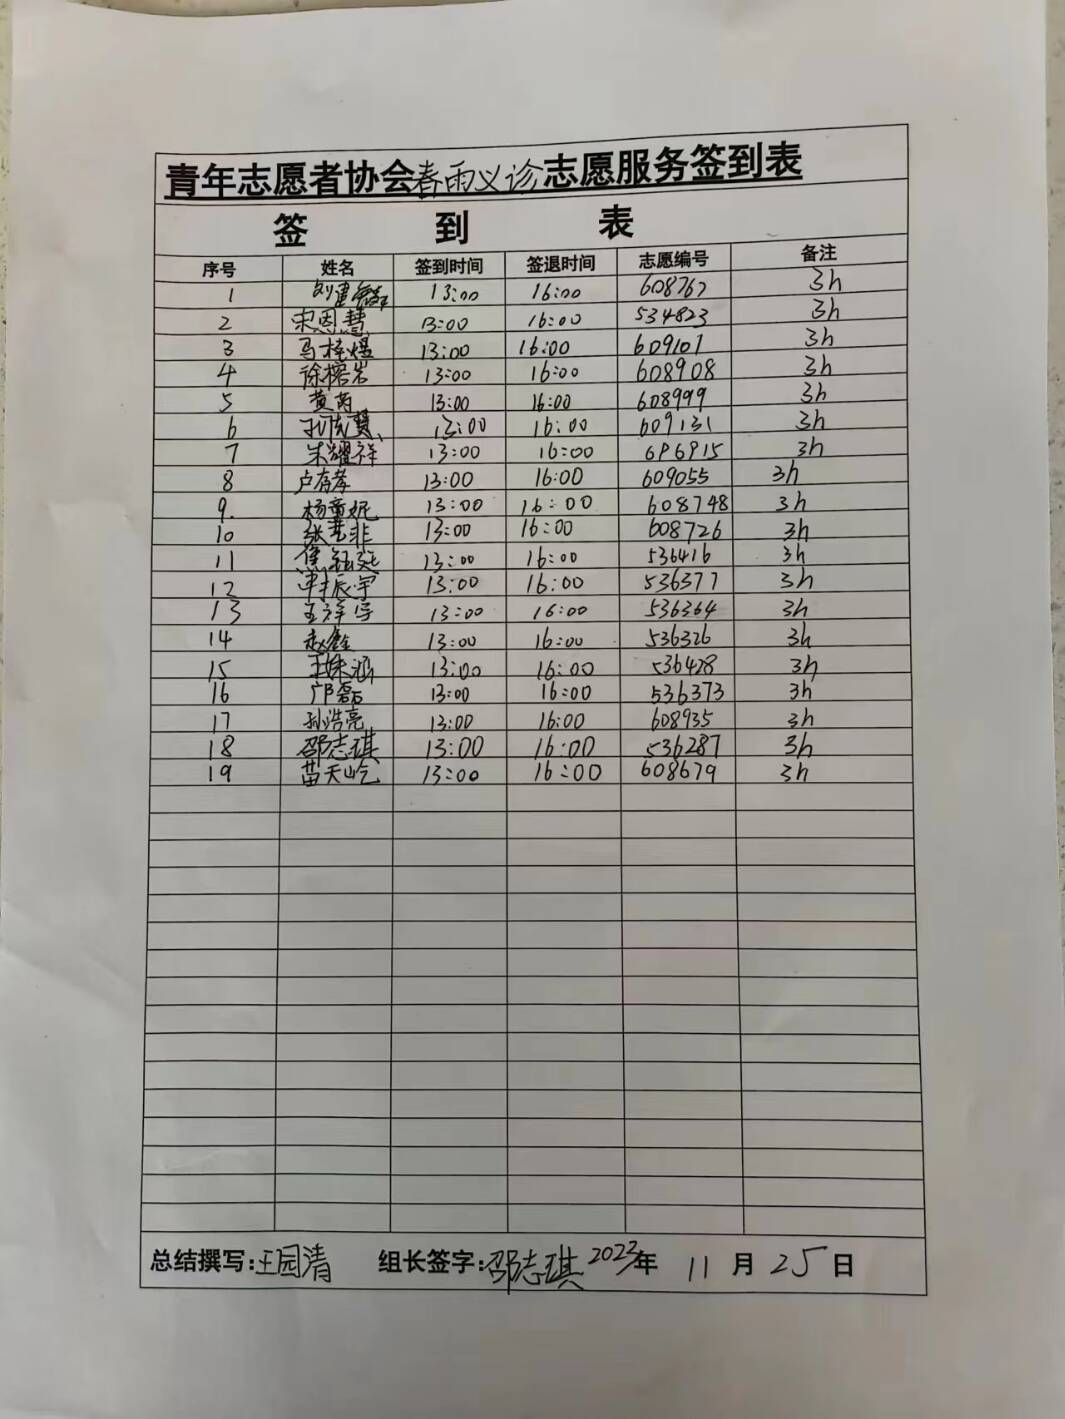 青年志愿者协会春雨义诊志愿服务签到表
签 到 表
序号 姓名 签到时间 签退时间 志愿编号 备注
1 13:00 16:00 608767 3h
2 宋恩慧 13:00 16:00 534823 3h
3 马梓煜 13:00 16:00 609107 3h
4 徐榕岩 13:00 16:00 608908 3h
5 黄芮 13:00 16:00 608999 3h
6 13:00 16:00 609131 3h
7 朱耀祥 13:00 16:00 3h
8 卢存孝 13:00 16:00 609055 3h
9. 杨童妮 13:00 16:00 608748 3h
10 13:00 16:00 608726 3h
11 13:00 16:00 536416 3h
12 振宇 13:00 16:00 536377 3h
13 王祥宇 13:00 16:00 536364 3h
14 赵鑫 13:00 16:00 536326 3h
15 王姝涵 13:00 16:00 536428 3h
16 邝磊 13:00 16:00 536373 3h
17 孙浩亮 13:00 16:00 608935 3h
18 邵志琪 13:00 16:00 536287 3h
19 苗天屹 13:00 16:00 608679 3h
总结撰写:王园清 组长签字:邵志琪 2023年 11 月 25 日